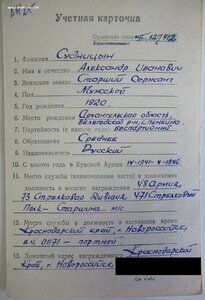 Учетная карточка
Орденская книжка № Б.
1. Фамилия Судницын
2. Имя и отчество Александр Иванович
3. Воинское звание Старший Сержант
4. Пол Мужской
5. Год рождения 1920.
6. Место рождения Архангельская область,
7. Партийность (с какого года) беспартийный
8. Образование Среднее
9. Национальность Русский
10. С какого года в Красной Армии IV-1941-X-1946
11. Место службы (наименование части) и занимаемая
должность в момент награждения 48 Армия,
73 Стрелковая Дивизия, 471 Стрелковый
Полк - Старшина м/с
12. Место службы и должность в настоящее время
Краснодарский край, г. Новороссийск,
в.ч. 01171 -
13. Домашний адрес награжденного Краснодарский
край, г. Новороссийск,